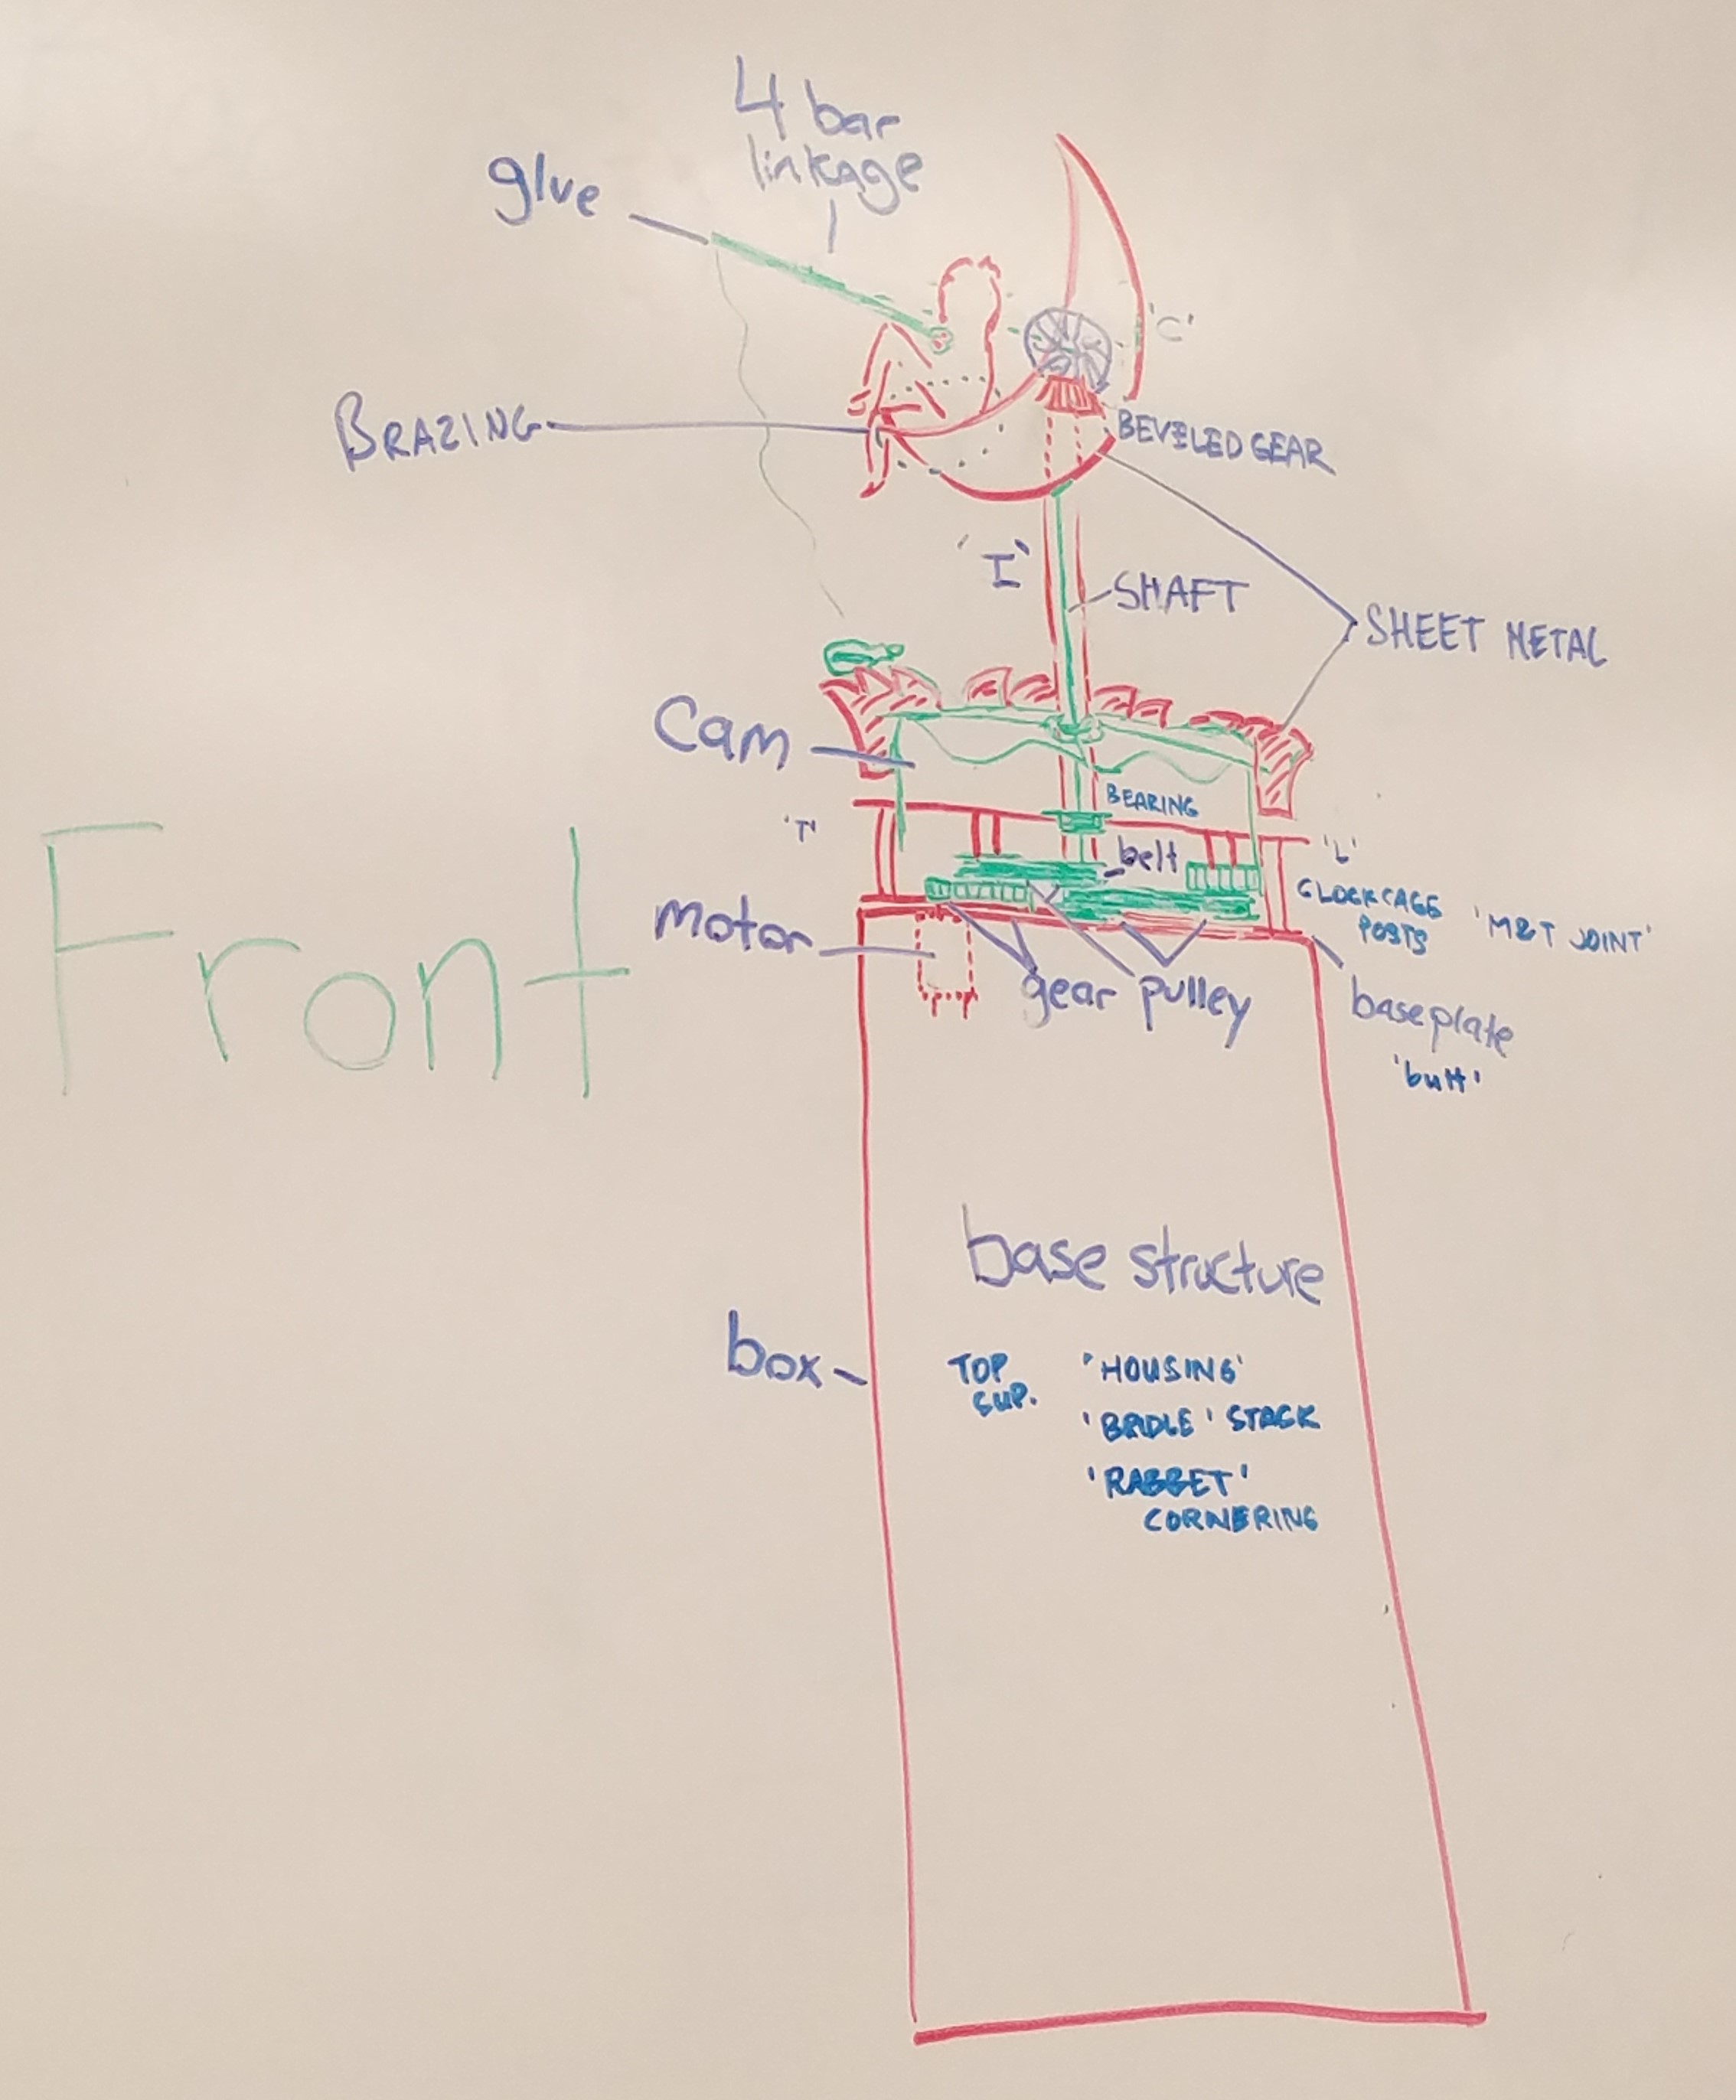 4 bar
linkage
glue
'C'
BRAZING
BEVELED GEAR
'I'
SHAFT
SHEET METAL
Cam
BEARING
'T'
belt
'L'
CLOCK CAGE
POSTS
'M&T JOINT'
Motor
gear pulley
baseplate
'butt'
Front
base structure
box
TOP
SUP.
'HOUSING'
'BRIDLE' STACK
'RABBET'
CORNERING